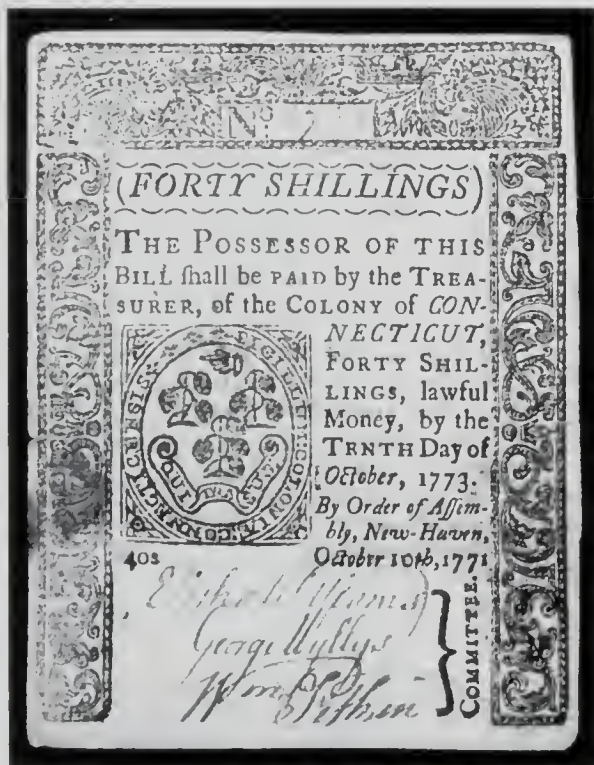 No
(FORTY SHILLINGS)
THE POSSESSOR OF THIS
BILL ſhall be PAID by the TREA-
SURER, of the COLONY of CON-
NECTICUT,
FORTY SHIL-
LINGS, lawful
Money, by the
TENTH Day of
October, 1773.
By Order of Aſſem-
bly, New-Haven,
October 10th, 1771
SIGILLUM COLONIÆ CONNECTICENSIS
QUI TRA SUS
40s
Elisha Williams
George Wyllys
Wm Pitkin
COMMITTEE.